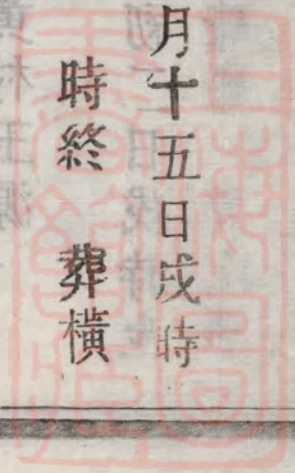 月十五日戌時
時終　葬橫